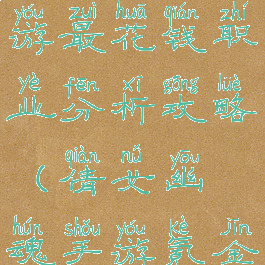 yóu zuì huā qián zhí
游最花钱职
yè fēn xī gōng lüè
业分析攻略
qiàn nǚ yōu
（倩女幽
hún shǒu yóu kè jīn
魂手游氪金